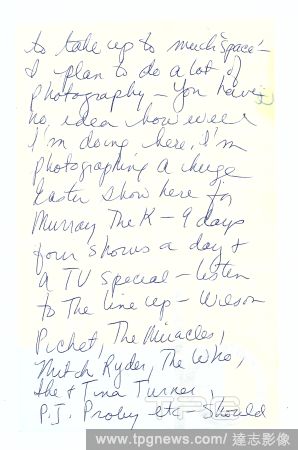 to take up to much "space" -
I plan to do a lot of
photography - You have
no idea how well
I'm doing here. I'm
photographing a huge
Easter Show here for
Murray The K - 9 days
four shows a day &
a TV special - listen
to The line up - Wilson
Picket, The Miracles,
Mitch Ryder, The Who,
Ike & Tina Turner,
P.J. Proby etc - Should
TPG
www.tpgnews.com/達志影像